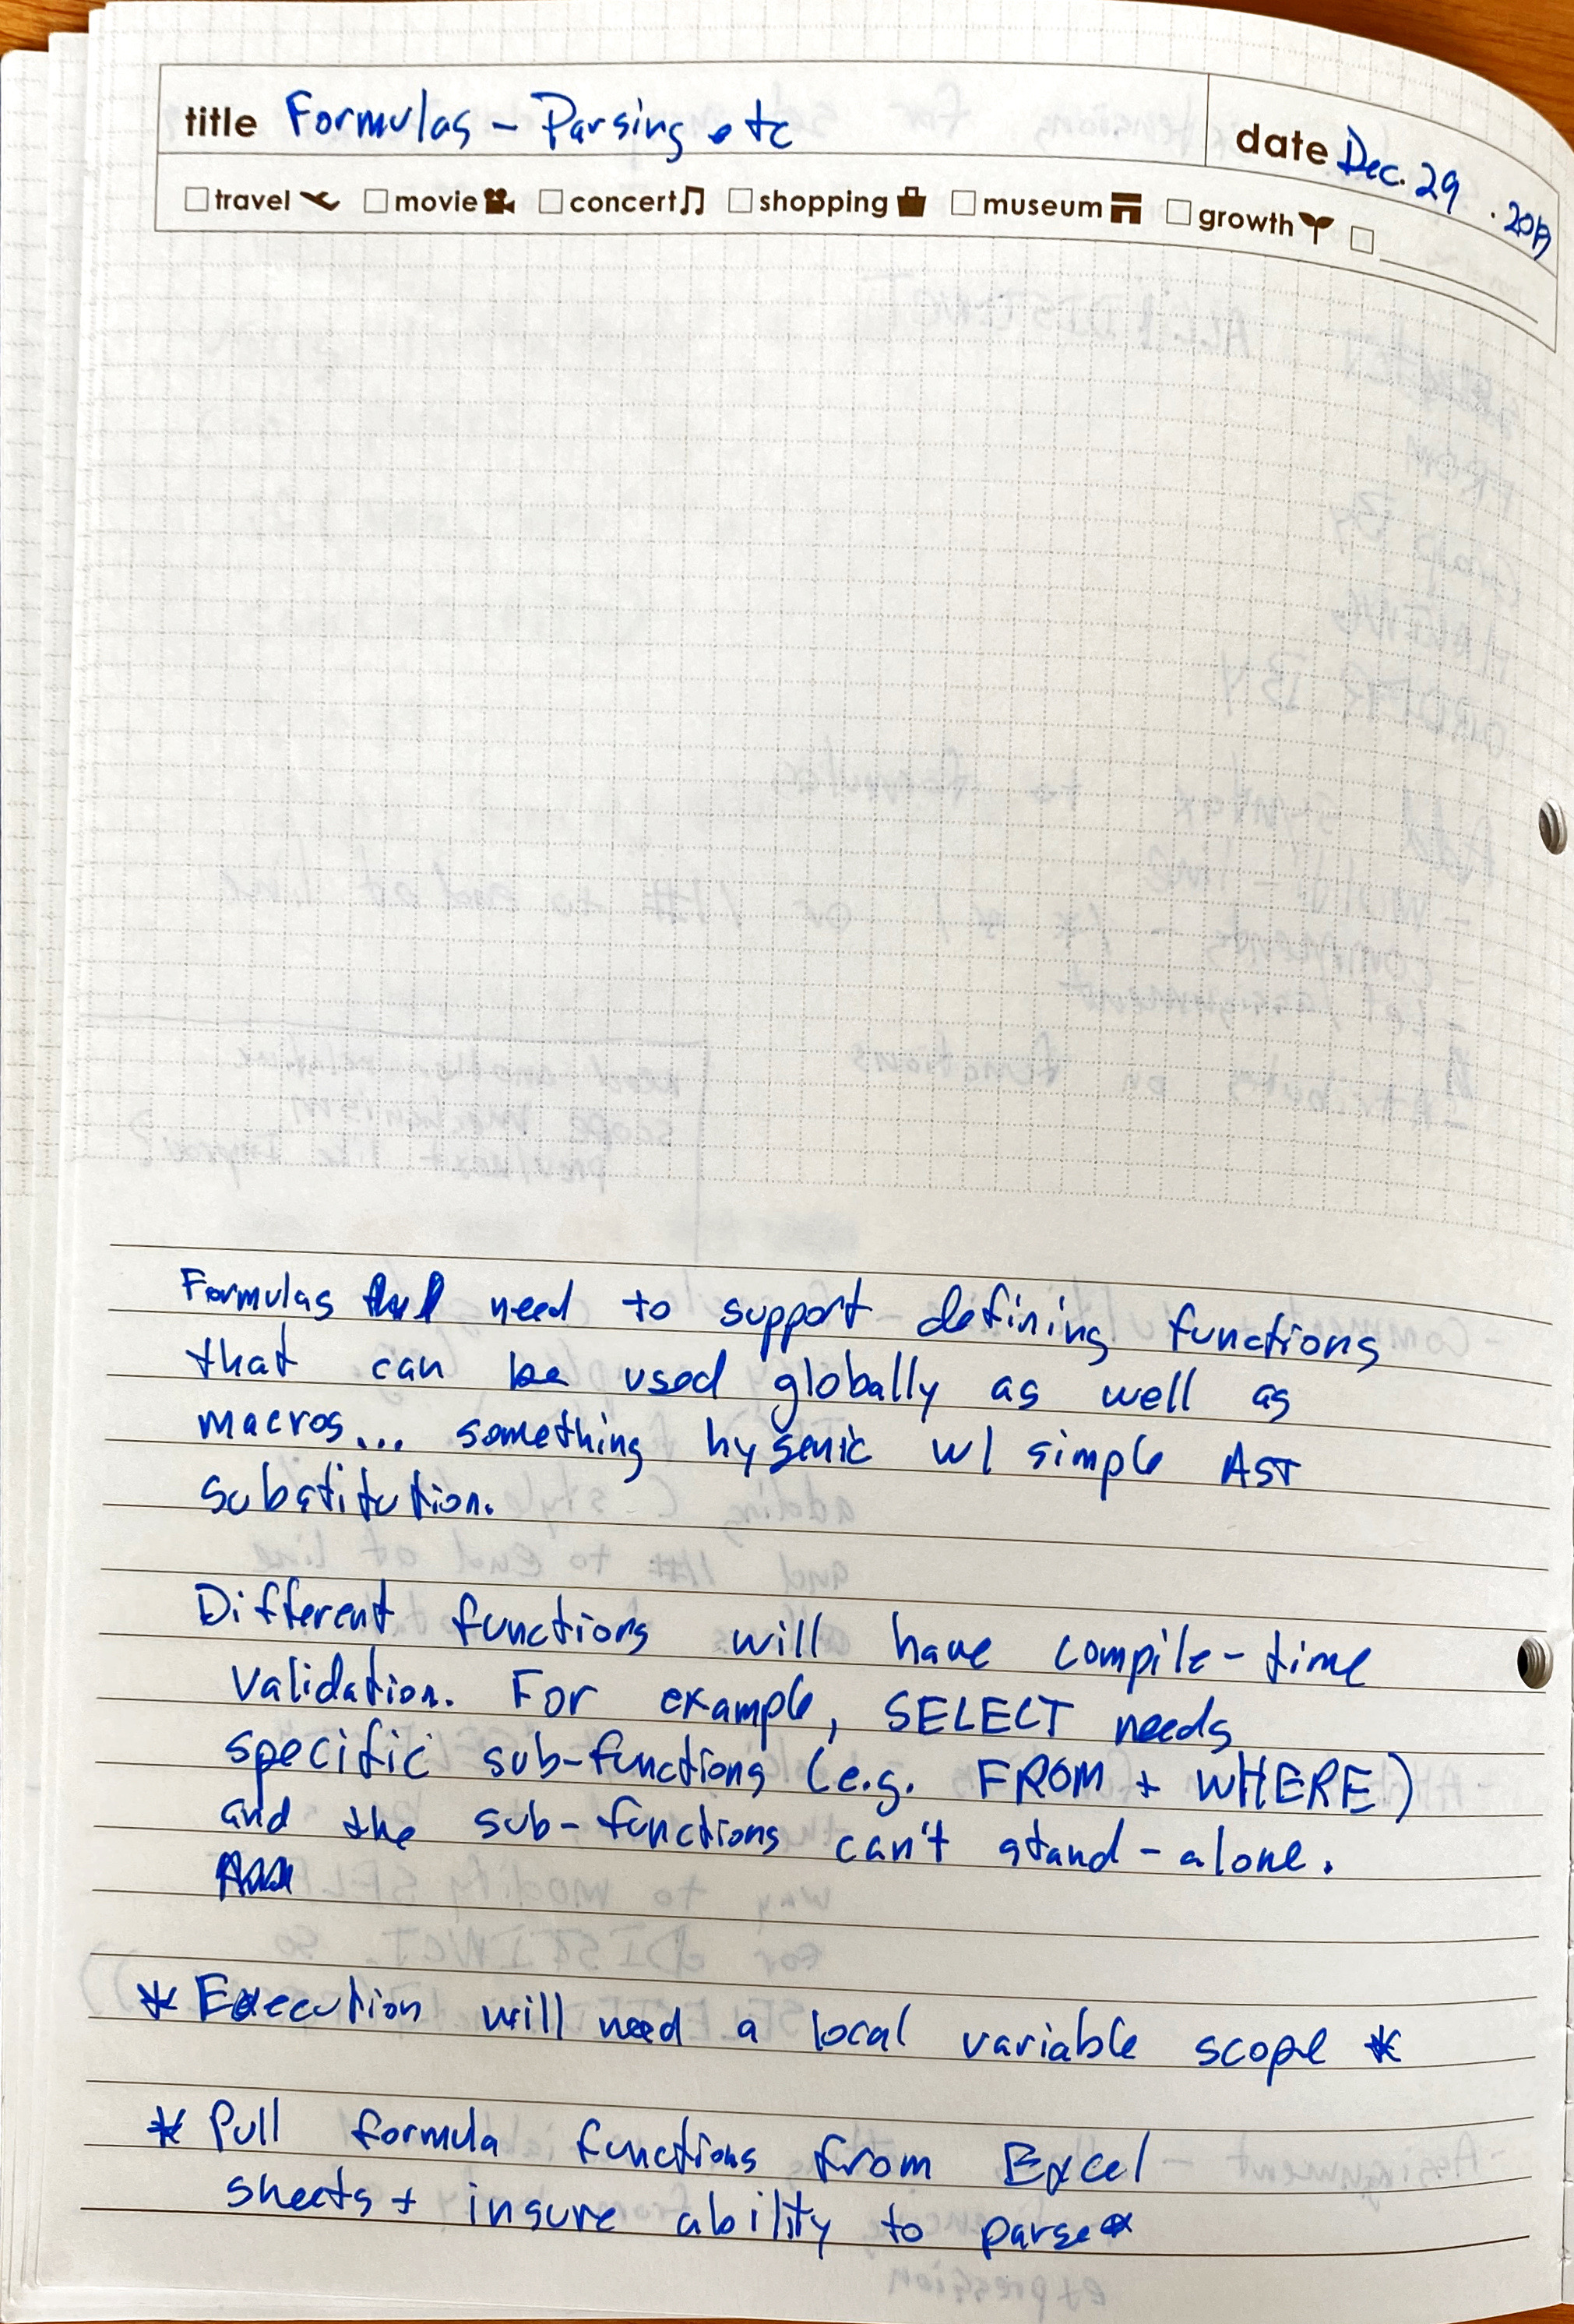 title Formulas - Parsing etc
date Dec. 29 . 2013
travel movie concert shopping museum growth
Formulas need to support defining functions
that can be used globally as well as
macros... something hygenic w/ simple AST
substitution.
Different functions will have compile-time
validation. For example, SELECT needs
specific sub-functions (e.g. FROM + WHERE)
and the sub-functions can't stand-alone.
* Execution will need a local variable scope *
* Pull formula functions from Excel
sheets + insure ability to parse *